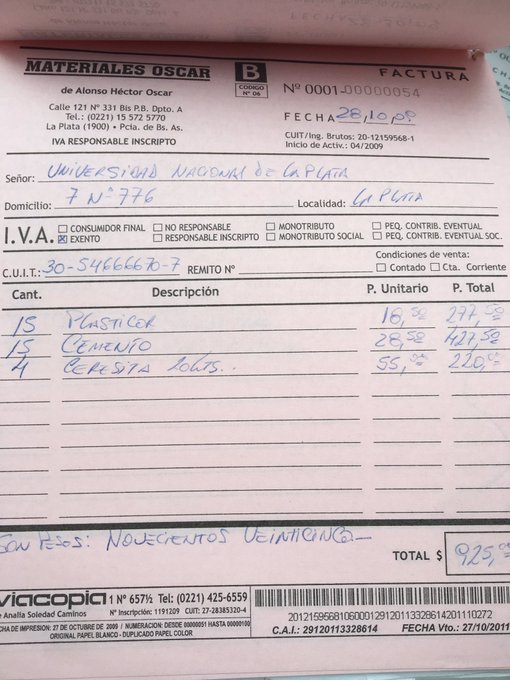 MATERIALES OSCAR
de Alonso Héctor Oscar
Calle 121 Nº 331 Bis P.B. Dpto. A
Tel.: (0221) 15 572 5770
La Plata (1900) • Pcia. de Bs. As.
IVA RESPONSABLE INSCRIPTO
B
CODIGO
Nº 06
FACTURA
Nº 0001-00000054
FECHA 28,10,09
CUIT/Ing. Brutos: 20-12159568-1
Inicio de Activ.: 04/2009
Señor: UNIVERSIDAD NACIONAL DE LA PLATA
Domicilio: 7 Nº 776 Localidad: LA PLATA
I.V.A. CONSUMIDOR FINAL NO RESPONSABLE MONOTRIBUTO PEQ. CONTRIB. EVENTUAL
X EXENTO RESPONSABLE INSCRIPTO MONOTRIBUTO SOCIAL PEQ. CONTRIB. EVENTUAL SOC.
Condiciones de venta:
C.U.I.T.: 30-54666670-7 REMITO Nº Contado Cta. Corriente
Cant. Descripción P. Unitario P. Total
15 PLASTICOR 18,50 277,50
15 CEMENTO 28,50 427,50
4 CERESITA 20 LTS.. 55,00 220,00
SON PESOS: NOVECIENTOS VEINTICINCO
TOTAL $ 925,00
viacopia 1 Nº 657½ Tel: (0221) 425-6559
de Analia Soledad Caminos Nº Inscripción: 1191209 CUIT: 27-28385320-4
FECHA DE IMPRESION: 27 DE OCTUBRE DE 2009 / NUMERACION: DESDE 00000051 HASTA 00000100
ORIGINAL PAPEL BLANCO - DUPLICADO PAPEL COLOR
2012159568106000129120113328614201110272
C.A.I.: 29120113328614 FECHA Vto.: 27/10/2011